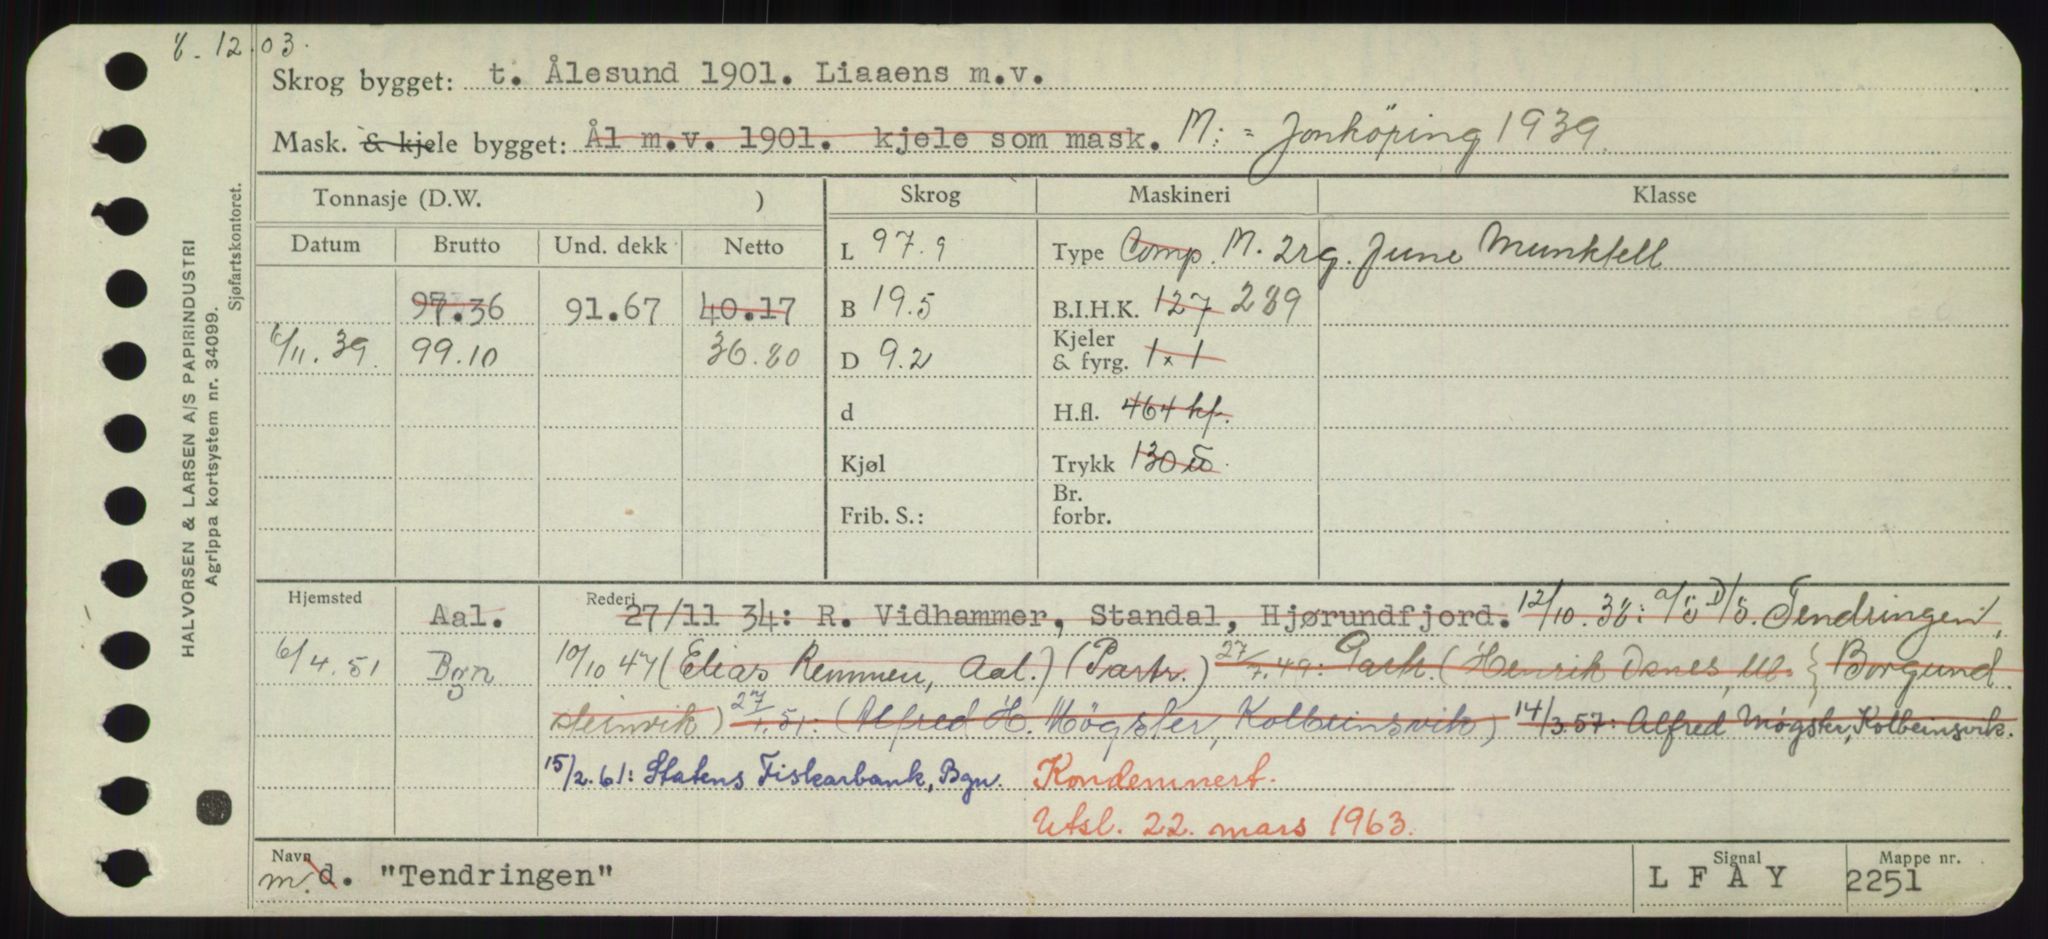 8.12.03.
Skrog bygget: t. Ålesund 1901. Liaaens m.v.
Mask. & kjele bygget: Ål m.v. 1901. kjele som mask. M: = Jonköping 1939.
Tonnasje (D.W. ) Skrog Maskineri Klasse
Datum Brutto Und. dekk Netto L 97.9 Type Comp. M. 2rg. June Munktell
97.36 91.67 40.17 B 19.5 B.I.H.K. 127 289
6/11.39. 99.10 36.80 D 9.2 Kjeler & fyrg. 1x1
d H.fl. 464 hf.
Kjøl Trykk 130
Frib. S.: Br. forbr.
Hjemsted Aal. Rederi 27/11 34: R. Vidhammer, Standal, Hjørundfjord. 12/10.38: a/s D/S. Tendringen,
6/4.51 Bgn 10/10 47 (Elias Remmen, Aal.) (Partr.) 27/7.49: Partr. (Henrik Osnes, Ul. } Borgund
steinvik) 27/1.51: (Alfred H. Møgster, Kolbeinsvik) 14/3.57: Alfred Møgster, Kolbeinsvik.
15/2.61: Statens Fiskarbank, Bgn. Kondemnert.
Utsl. 22. mars 1963.
Navn m. d. "Tendringen" Signal L F A Y Mappe nr. 2251
HALVORSEN & LARSEN A/S PAPIRINDUSTRI
Agrippa kortsystem nr. 34099.
Sjøfartskontoret.